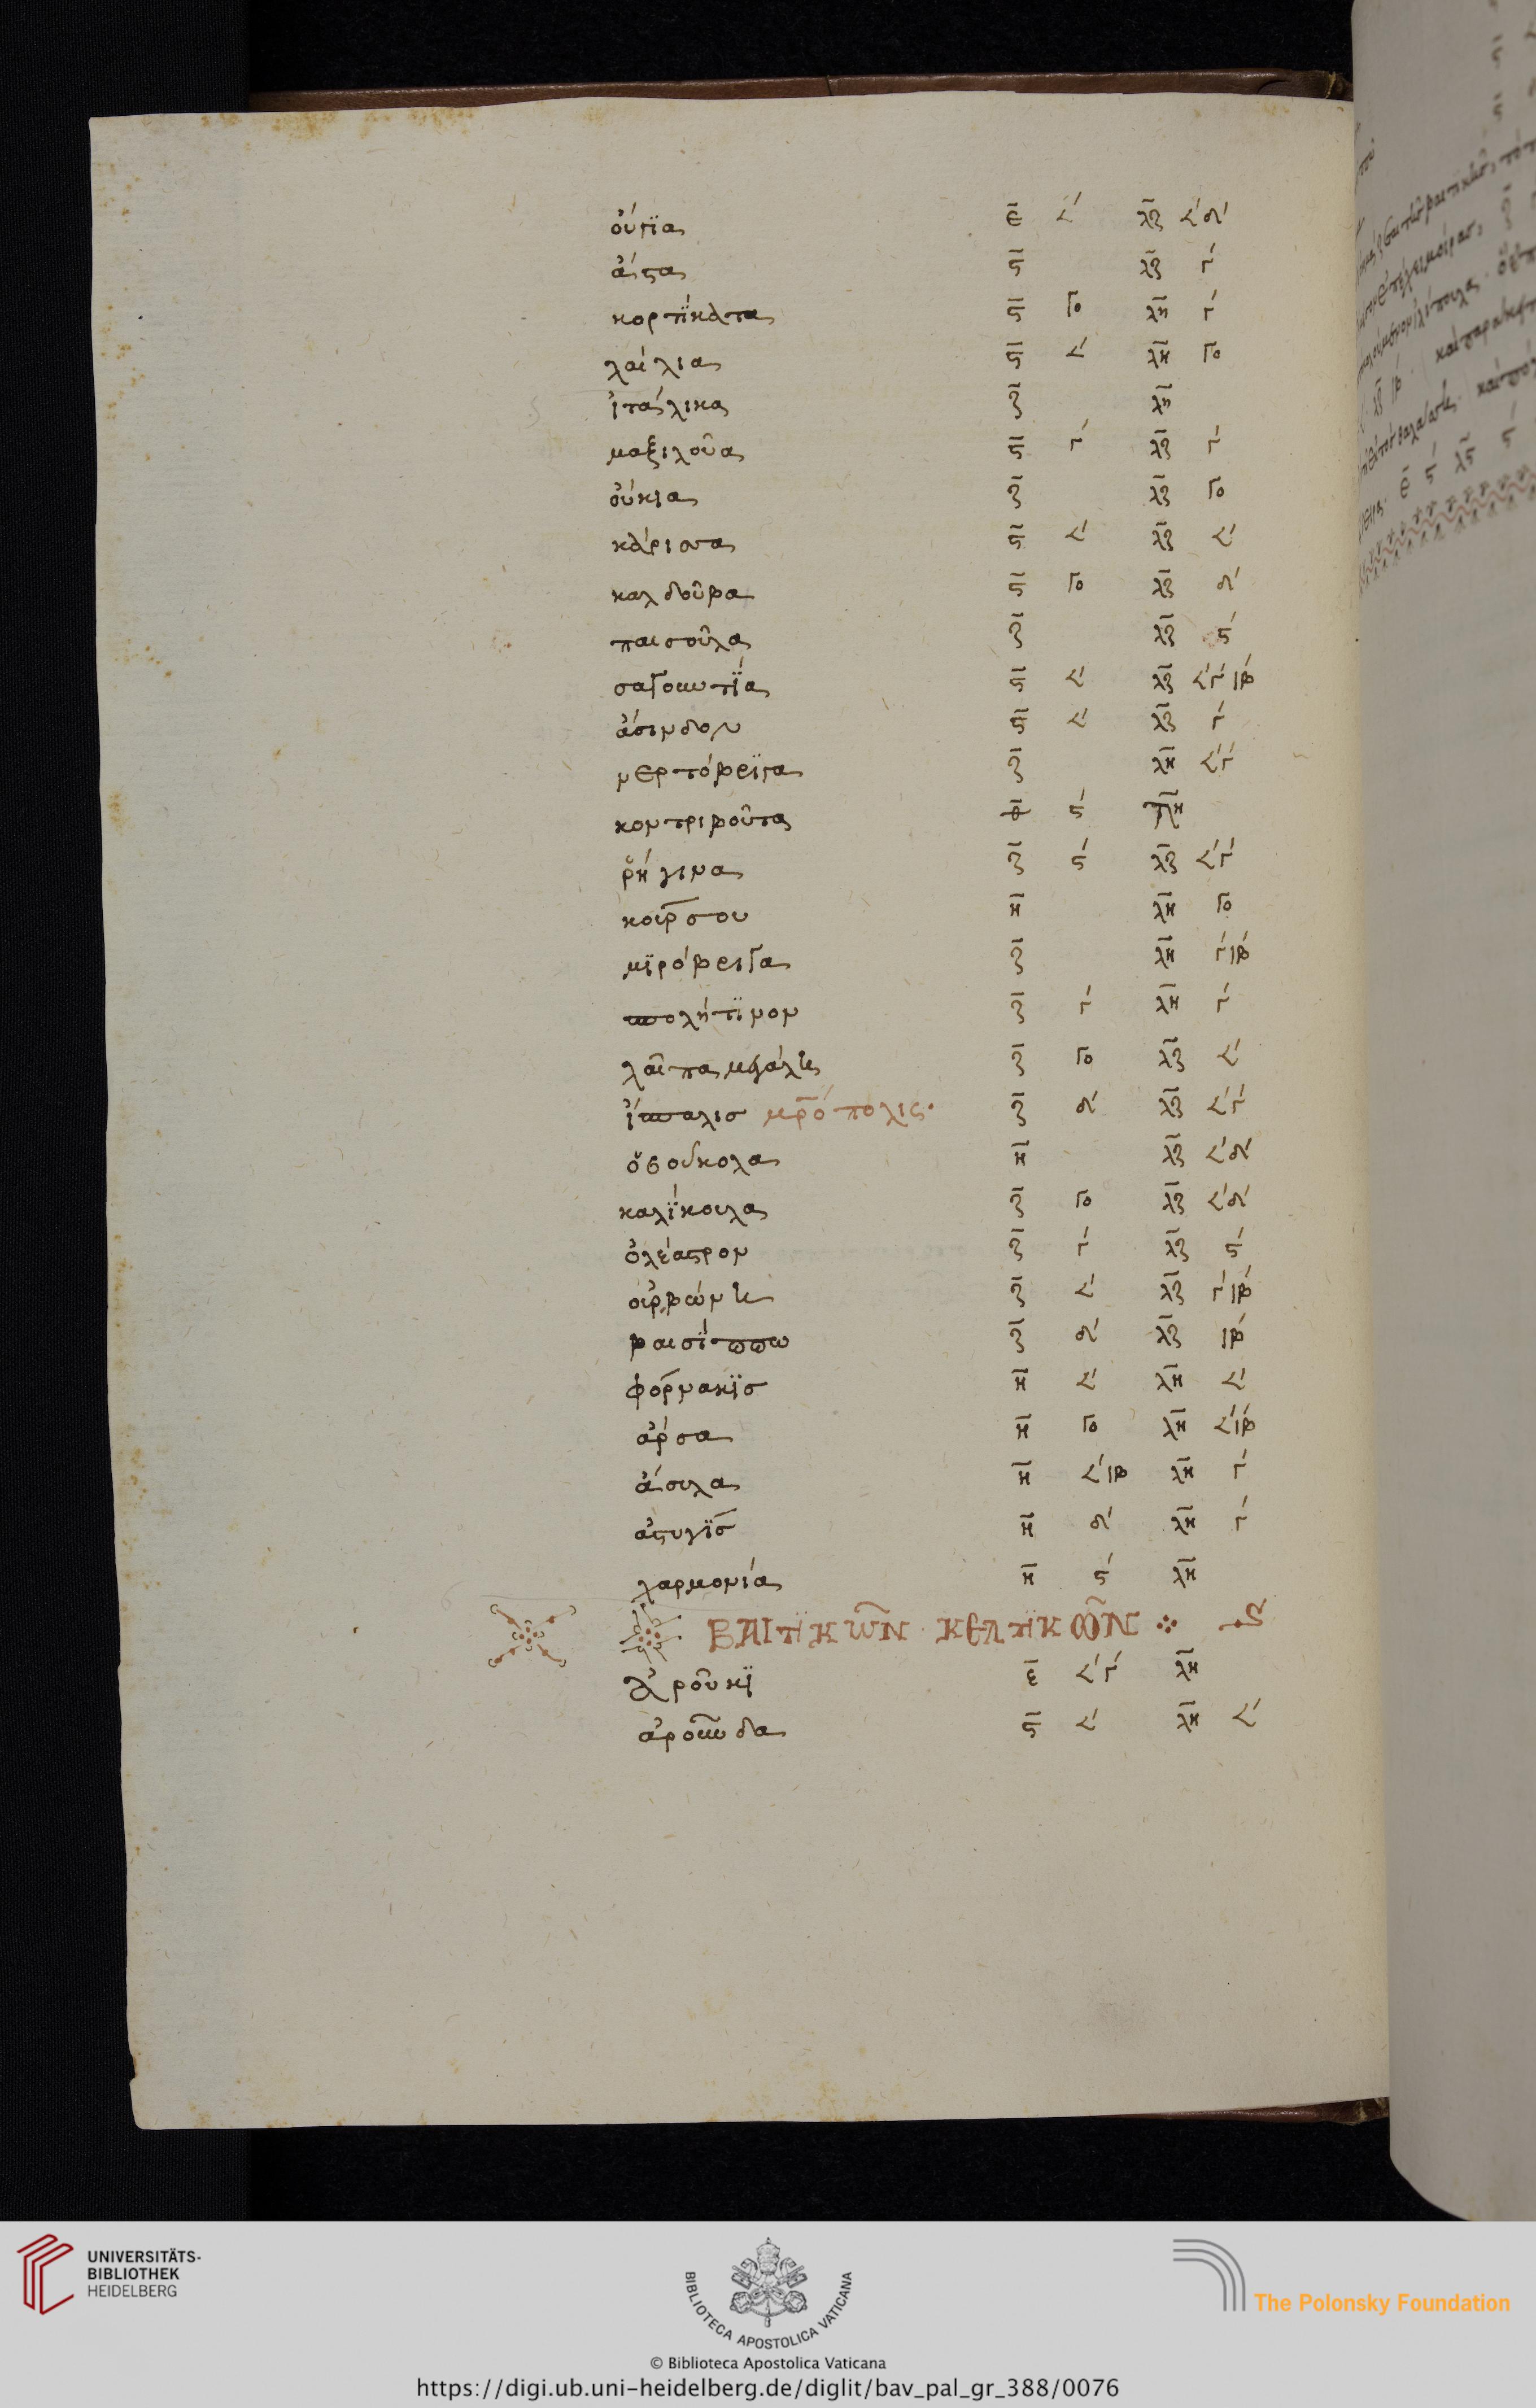 ὀύγϊα ε̄ 𐅵 λ̄ζ 𐅵 δ
ἄστα ϛ̄ λ̄ζ γ
κορτϊκάτα ϛ̄ γο λ̄η γ
λαίλια ϛ̄ 𐅵 λ̄η γο
ἰτάλικα ζ̄ λ̄η
μαξιλοῦα ϛ̄ γ λ̄ζ γ
ὀύκια ζ̄ λ̄ζ γο
κάρισσα ϛ̄ 𐅵 λ̄ζ 𐅵
καλδοῦβα ϛ̄ γο λ̄ζ δ
παισοῦλα ζ̄ λ̄ζ ϛ
σαγουντϊα ϛ̄ 𐅵 λ̄ζ 𐅵 γ ιβ
ἄσινδον ϛ̄ 𐅵 λ̄ζ γ
νερτόβειγα ζ̄ λ̄η 𐅵 γ
κοντριβοῦτα ϛ λ̄η
ῥήγινα ζ̄ ϛ λ̄ζ 𐅵 γ
κουρσου η̄ λ̄η γο
μϊρόβειγα ζ̄ λ̄η γ ιβ
σπολήτϊνον ζ̄ γ λ̄η γ
λαῖπα μεγάλη ζ̄ γο λ̄ζ 𐅵
ἵσπαλισ μρ̄όπολις· ζ̄ δ λ̄ζ 𐅵 γ
ὀβούκολα η̄ λ̄ζ 𐅵 δ
καλϊκουλα ζ̄ γο λ̄ζ 𐅵 δ
ὀλέαστρον ζ̄ γ λ̄ζ ϛ
οὐρβώνη ζ̄ 𐅵 λ̄ζ γ ιβ
βαισϊππω ζ̄ δ λ̄ζ ιβ
φορνακϊσ η̄ 𐅵 λ̄η 𐅵
ἄρσα η̄ γο λ̄η 𐅵 ιβ
ἄσυλα η̄ 𐅵 ιβ λ̄η γ
ἀστυγϊσ η̄ δ λ̄η γ
χαρμονία η̄ ϛ λ̄η
ΒΑΙΤΪΚῶΝ ΚΕΛΤΪΚῶΝ
ἀροῦκϊ ε̄ 𐅵 γ λ̄η
ἀροῦνδα ϛ̄ 𐅵 λ̄η 𐅵
UNIVERSITÄTS-
BIBLIOTHEK
HEIDELBERG
BIBLIOTECA APOSTOLICA VATICANA
© Biblioteca Apostolica Vaticana
The Polonsky Foundation
https://digi.ub.uni-heidelberg.de/diglit/bav_pal_gr_388/0076